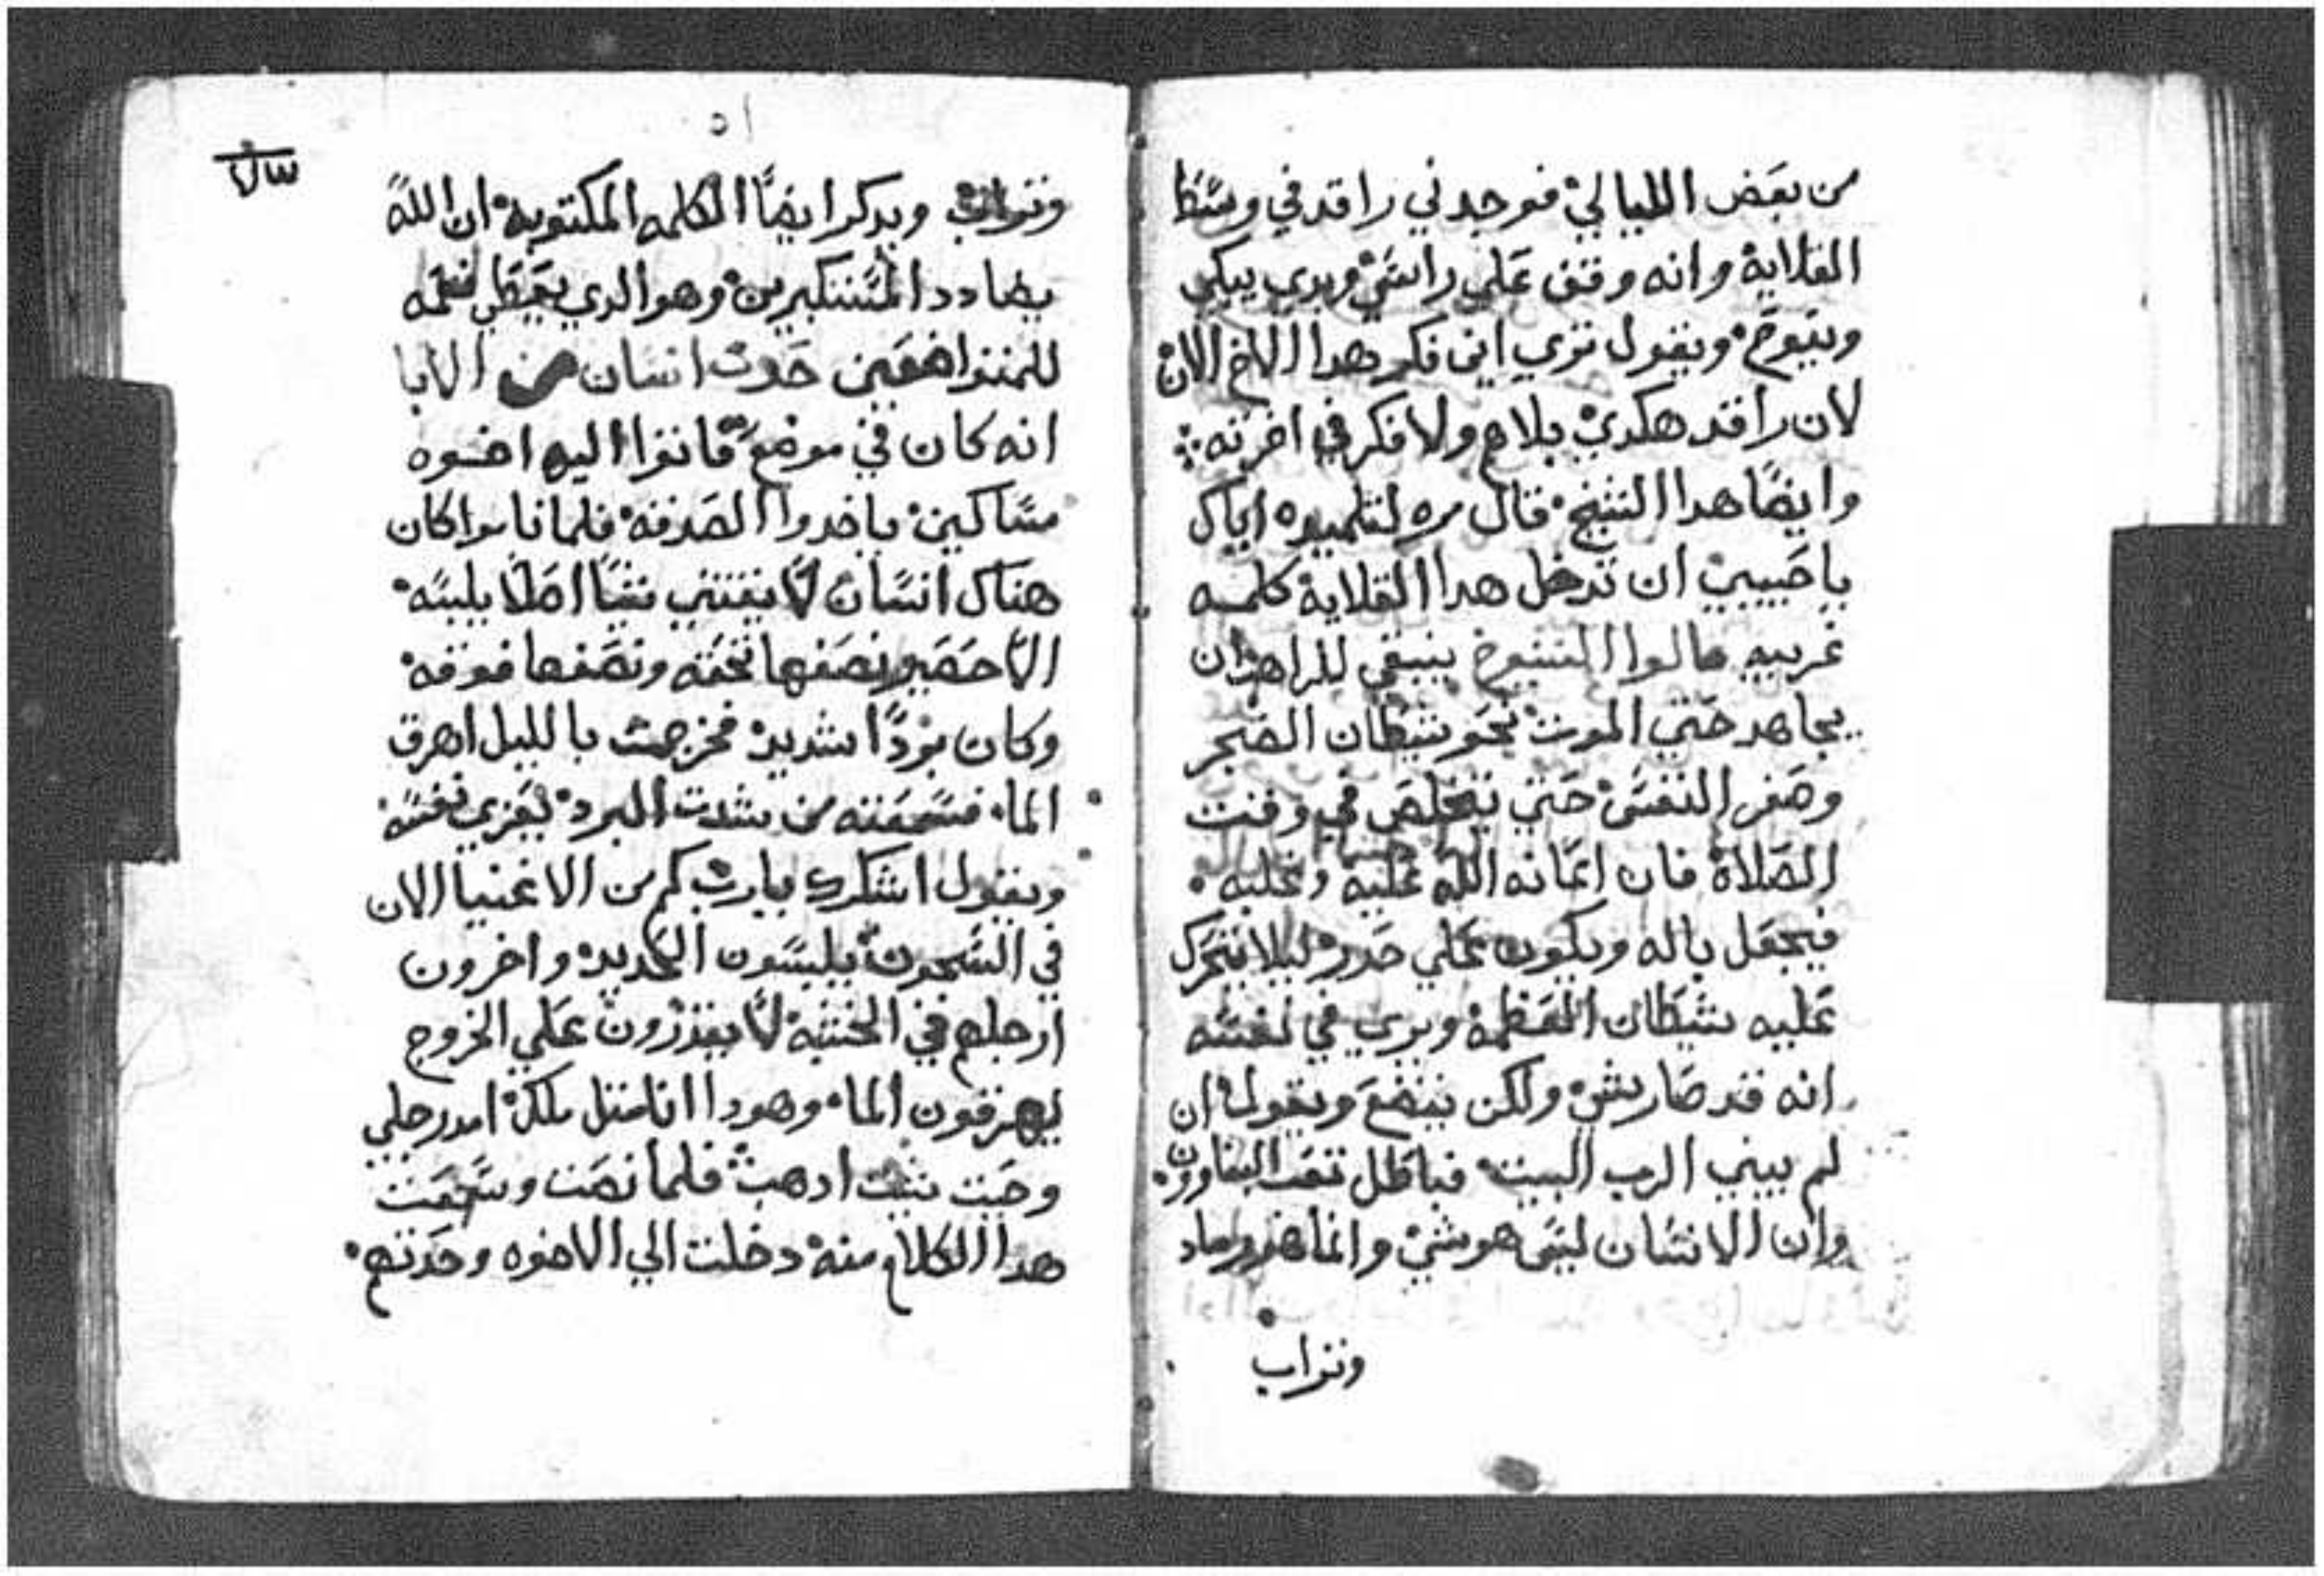 من بعض الليالي فوجدني راقد في وسط
القلاية وانه وقف علي راسي وبدي يبكي
وينوح ويقول تري اين فكر هدا الاخ الان
لان راقد هكدي بلا هم ولا فكر في اخرته
وايضا هدا الشيخ قال مره لتلميده اياك
يا حبيبي ان تدخل هدا القلاية كلمه
غريبه قالوا الشيوخ ينبغي للراهب ان
يجاهد حتي الموت نحو شيطان الضجر
وصغر النفس حتي يتخلص في وقت
الصلاة فان اعانه الله عليه وغلبه
فيجعل باله ويكون علي حدر ليلا يتحرك
عليه شيطان العظمة ويري في نفسه
انه قد صار شي ولكن يتضع ويقول ان
لم يبني الرب البيت فباطل تعب البناوون
وان الانسان ليس هو شي وانما هو رماد
وتراب
٥١
وتراب ويدكر ايضا الكلمه المكتوبة ان الله
يضادد المستكبرين وهو الدي يعطي نعمه
للمتواضعين حدث انسان من الابا
انه كان في موضع فاتوا اليه اخوه
مساكين ياخدوا الصدقة فلما ناموا كان
هناك انسان لا يقتني شيا اصلا يلبسه
الا حصير نصفها تحته ونصفها فوقه
وكان بردا شديد فخرجت بالليل اهرق
الما فسمعته من شدت البرد يعزي نفسه
ويقول اشكرك يارب كم من الاغنيا الان
في السجون يلبسون الحديد واخرون
ارجلهم في الخشبة لا يقدرون علي الخروج
يهرقون الما وهودا انا متل ملك امد رجلي
وحيت شيت ادهب فلما نصت وسمعت
هدا الكلام منه دخلت الي الاخوه وحدتهم